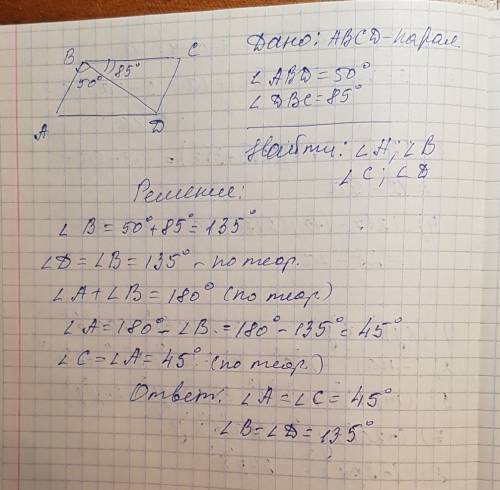 Дано: ABCD-парал.
∠ABD=50°
∠DBC=85°
Найти: ∠A; ∠B
∠C; ∠D
B
C
50°
85°
A
D
Решение:
∠B=50°+85°=135°
∠D=∠B=135° - по теор.
∠A+∠B=180° (по теор)
∠A=180°-∠B=180°-135°=45°
∠C=∠A=45° (по теор.)
Ответ: ∠A=∠C=45°
∠B=∠D=135°